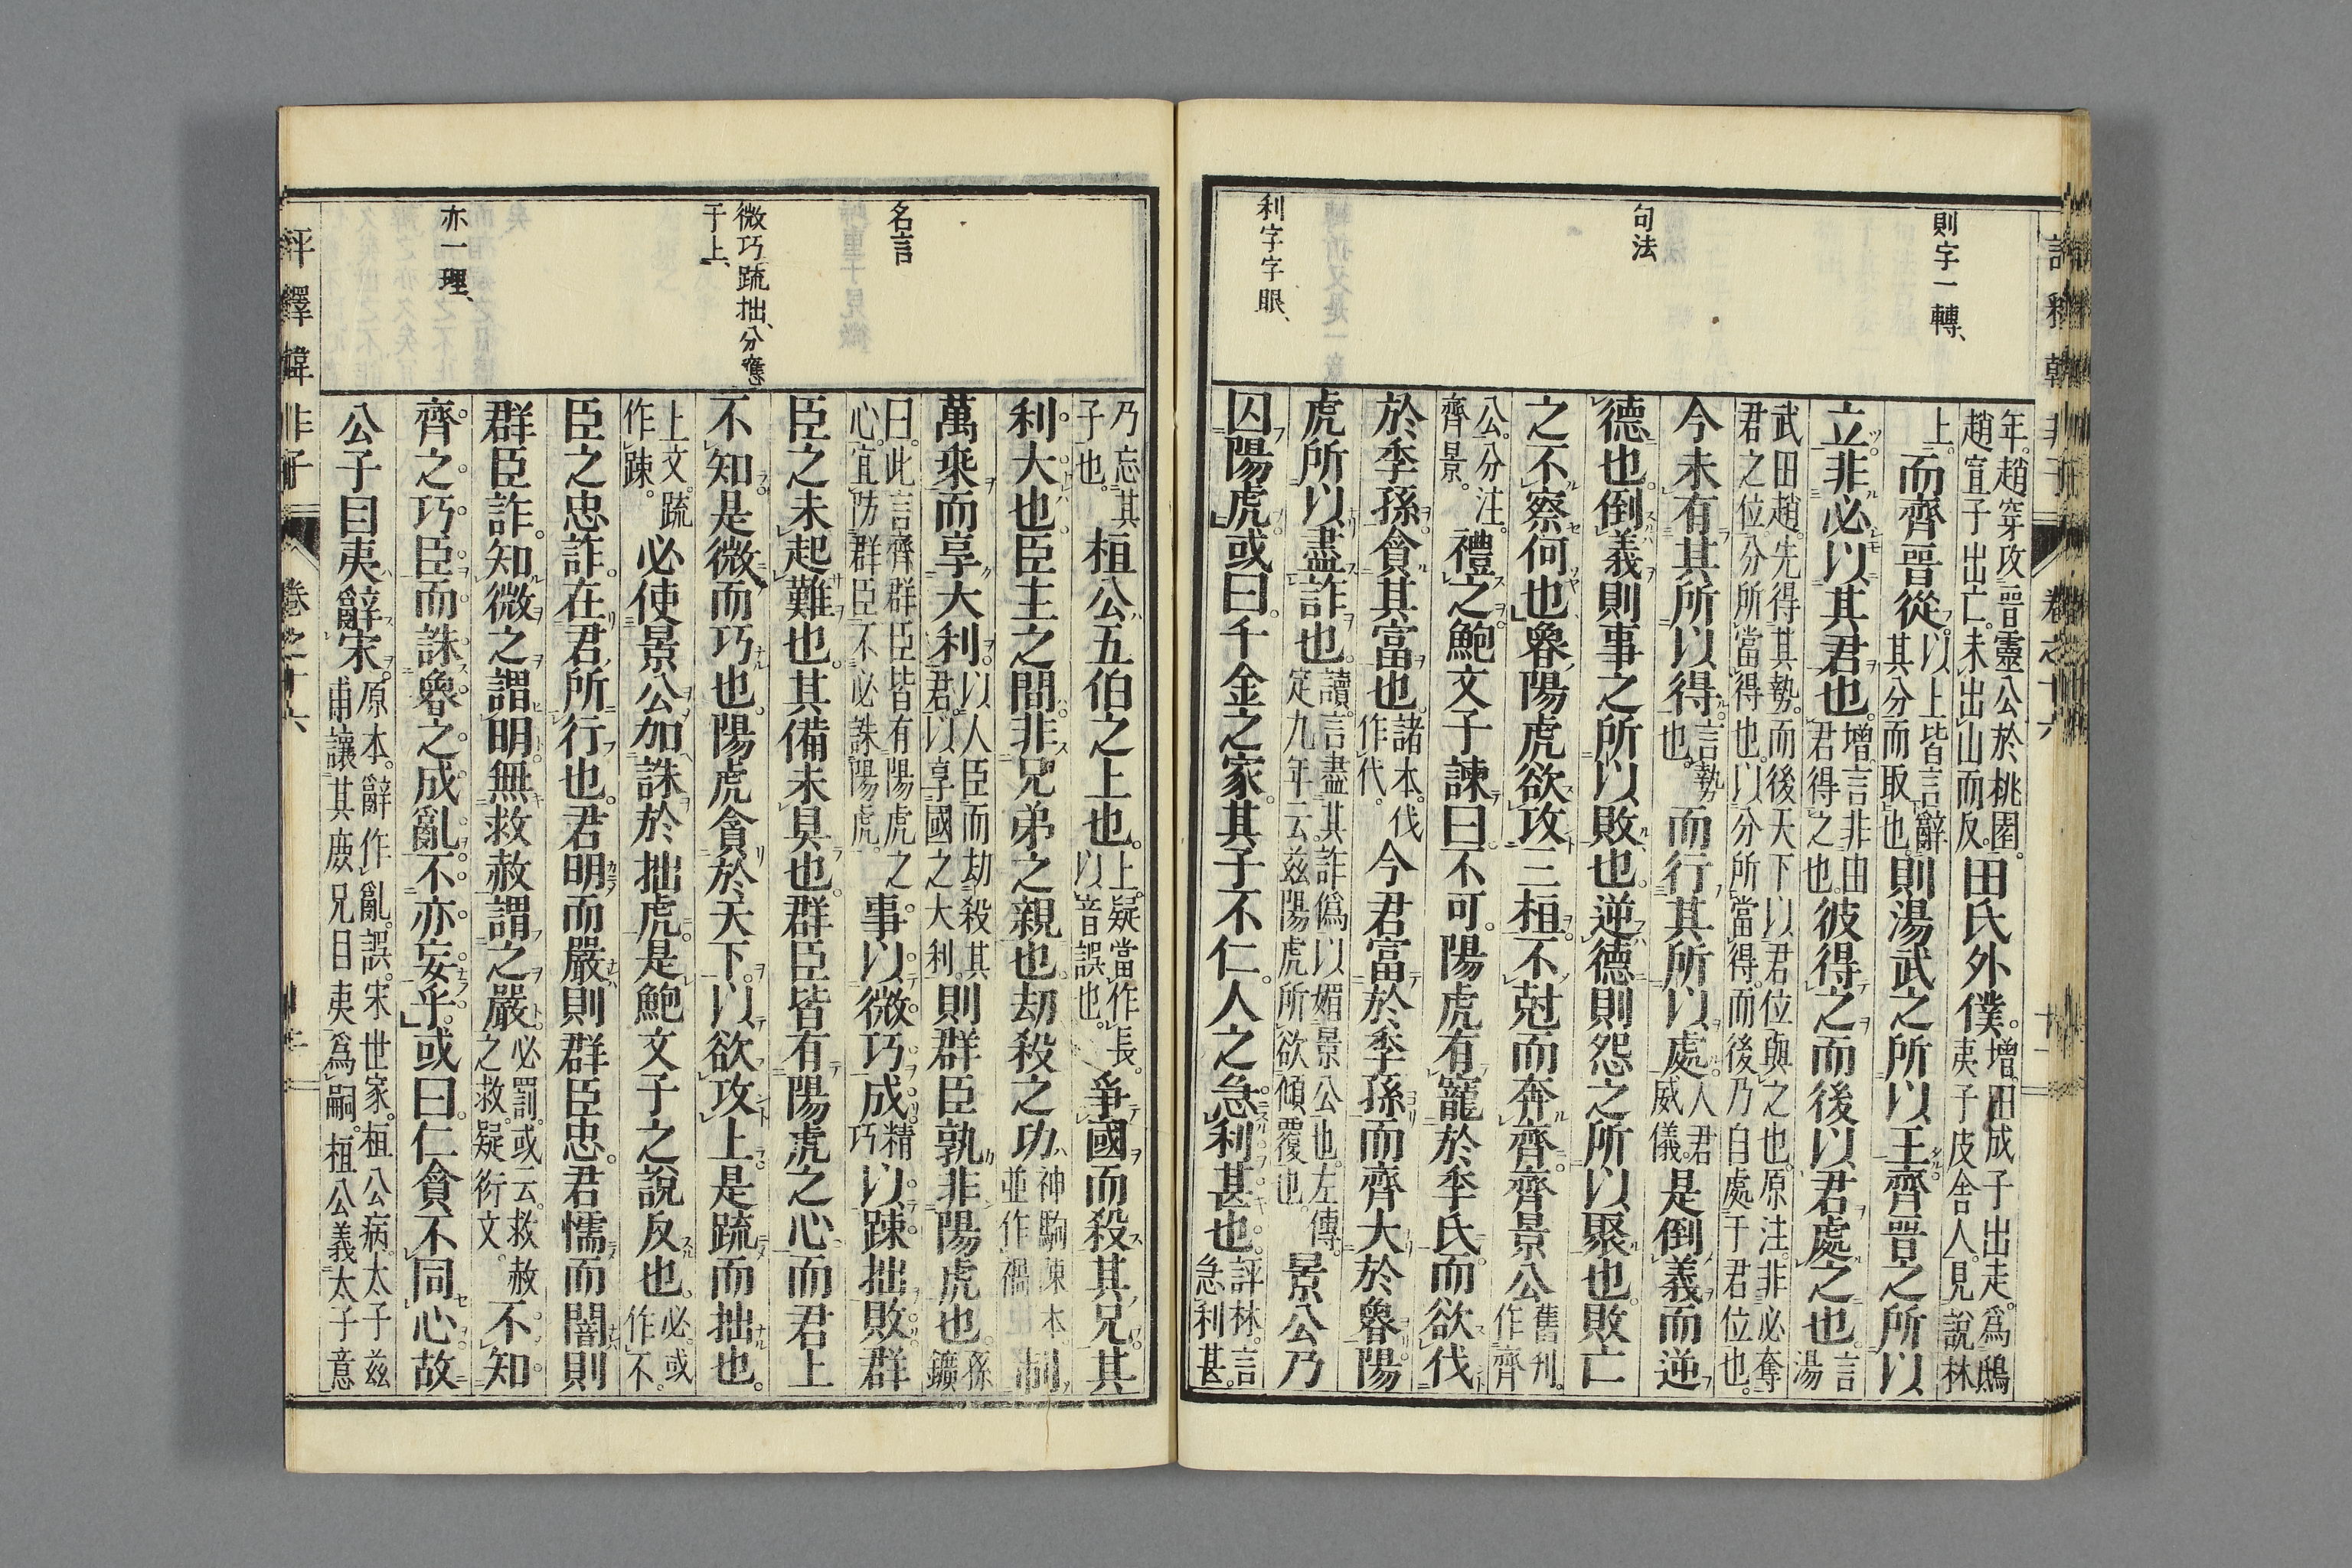 則字一轉、
句法
利字字眼、
年。趙穿攻晉靈公於桃園。趙宣子出亡。未出山而反。田氏外僕。增。田成子出走。爲鴟夷子皮舍人。見說林
上。而齊晉從。以上皆言辭其分而取也。則湯武之所以王。齊晉之所以
立。非必以其君也。增。言非由君得之也。彼得之而後以君處之也。言湯
武田趙。先得其勢。而後天下以君位與之也。原注。非必奪君之位。分所當得也。以分所當得。而後乃自處于君位也。
今未有其所以得。言勢也。而行其所以處。人君威儀。是倒義而逆
德也。倒義則事之所以敗也。逆德則怨之所以聚也。敗亡
之不察何也。魯陽虎欲攻三桓。不尅而奔齊。齊景公舊刊。作齊
公。分注。齊景。禮之。鮑文子諫曰。不可。陽虎有寵於季氏而欲伐
於季孫。貪其富也。諸本。伐作代。今君富於季孫。而齊大於魯。陽
虎所以盡詐也。讀。言盡其詐僞以媚景公也。左傳。定九年云。玆陽虎所欲傾覆也。景公乃
囚陽虎。或曰。千金之家。其子不仁。人之急利甚也。評林。言急利甚。
名言
微巧疏拙、分應
于上、
亦一理、
乃忘其子也。桓公五伯之上也。上。疑當作長。以音誤也。爭國而殺其兄。其
利大也。臣主之間。非兄弟之親也。劫殺之功。並作禍。制
萬乘而享大利。以人臣而劫殺其君。以享國之大利。則群臣孰非陽虎也。孫鑛
曰。此言齊群臣皆有陽虎之心。宜防群臣。不必誅陽虎。事以微巧成。精巧以踈拙敗。群
臣之未起難也。其備未具也。群臣皆有陽虎之心。而君上
不知。是微而巧也。陽虎貪於天下。以欲攻上。是疏而拙也。
上文。疏作踈。必使景公加誅於拙虎。是鮑文子之說反也。必。或作不。
臣之忠詐。在君所行也。君明而嚴則群臣忠。君懦而闇則
群臣詐。知微之謂明。無救赦謂之嚴。必罰。或云。救赦之救。疑衍文。不知
齊之巧臣。而誅魯之成亂。不亦妄乎。或曰。仁貪不同心。故
公子目夷辭宋。原本。辭作亂。誤。宋世家。桓公病。太子茲甫讓其庶兄目夷爲嗣。桓公義太子意
評釋韓非子 卷之十六